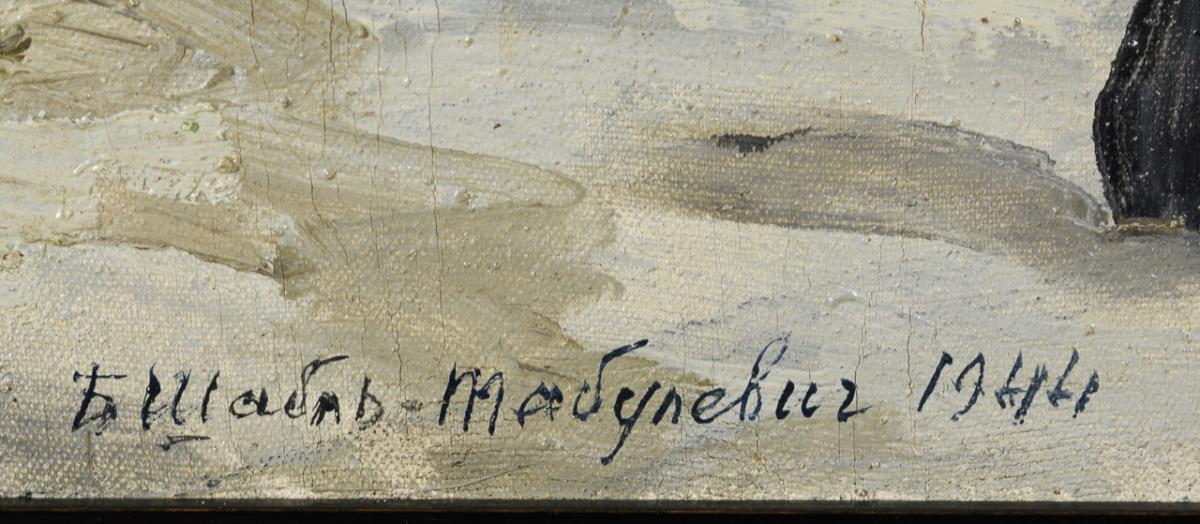 Б Шабль-Табулевич 1944